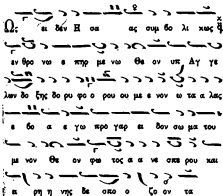 Ὡς εἶδεν Η σα ας συμ βο λι κως
εν θρο νω ε πηρ με νω Θε ον υπ Αγ γε
λων δο ξης δο ρυ φο ρου ου με ε νον ω τα α λας
ε βο α ε γω προ γαρ ει δον σω μα του
με νον Θε ον φω τος α α νε σπε ρου και
ει ρη η νης δε σπο ο ζον τα